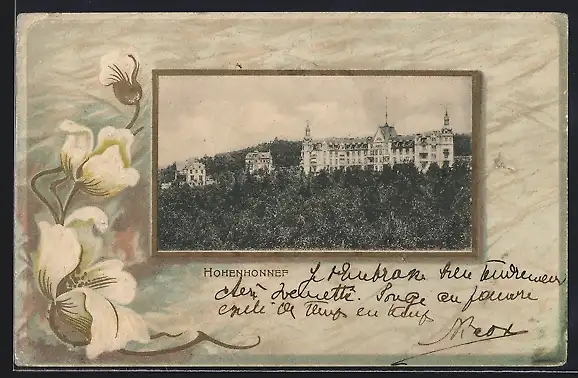 HOHENHONNEF
Je t'embrasse bien tendrement
chère Songe au pauvre
exilé de temps en temps
Max